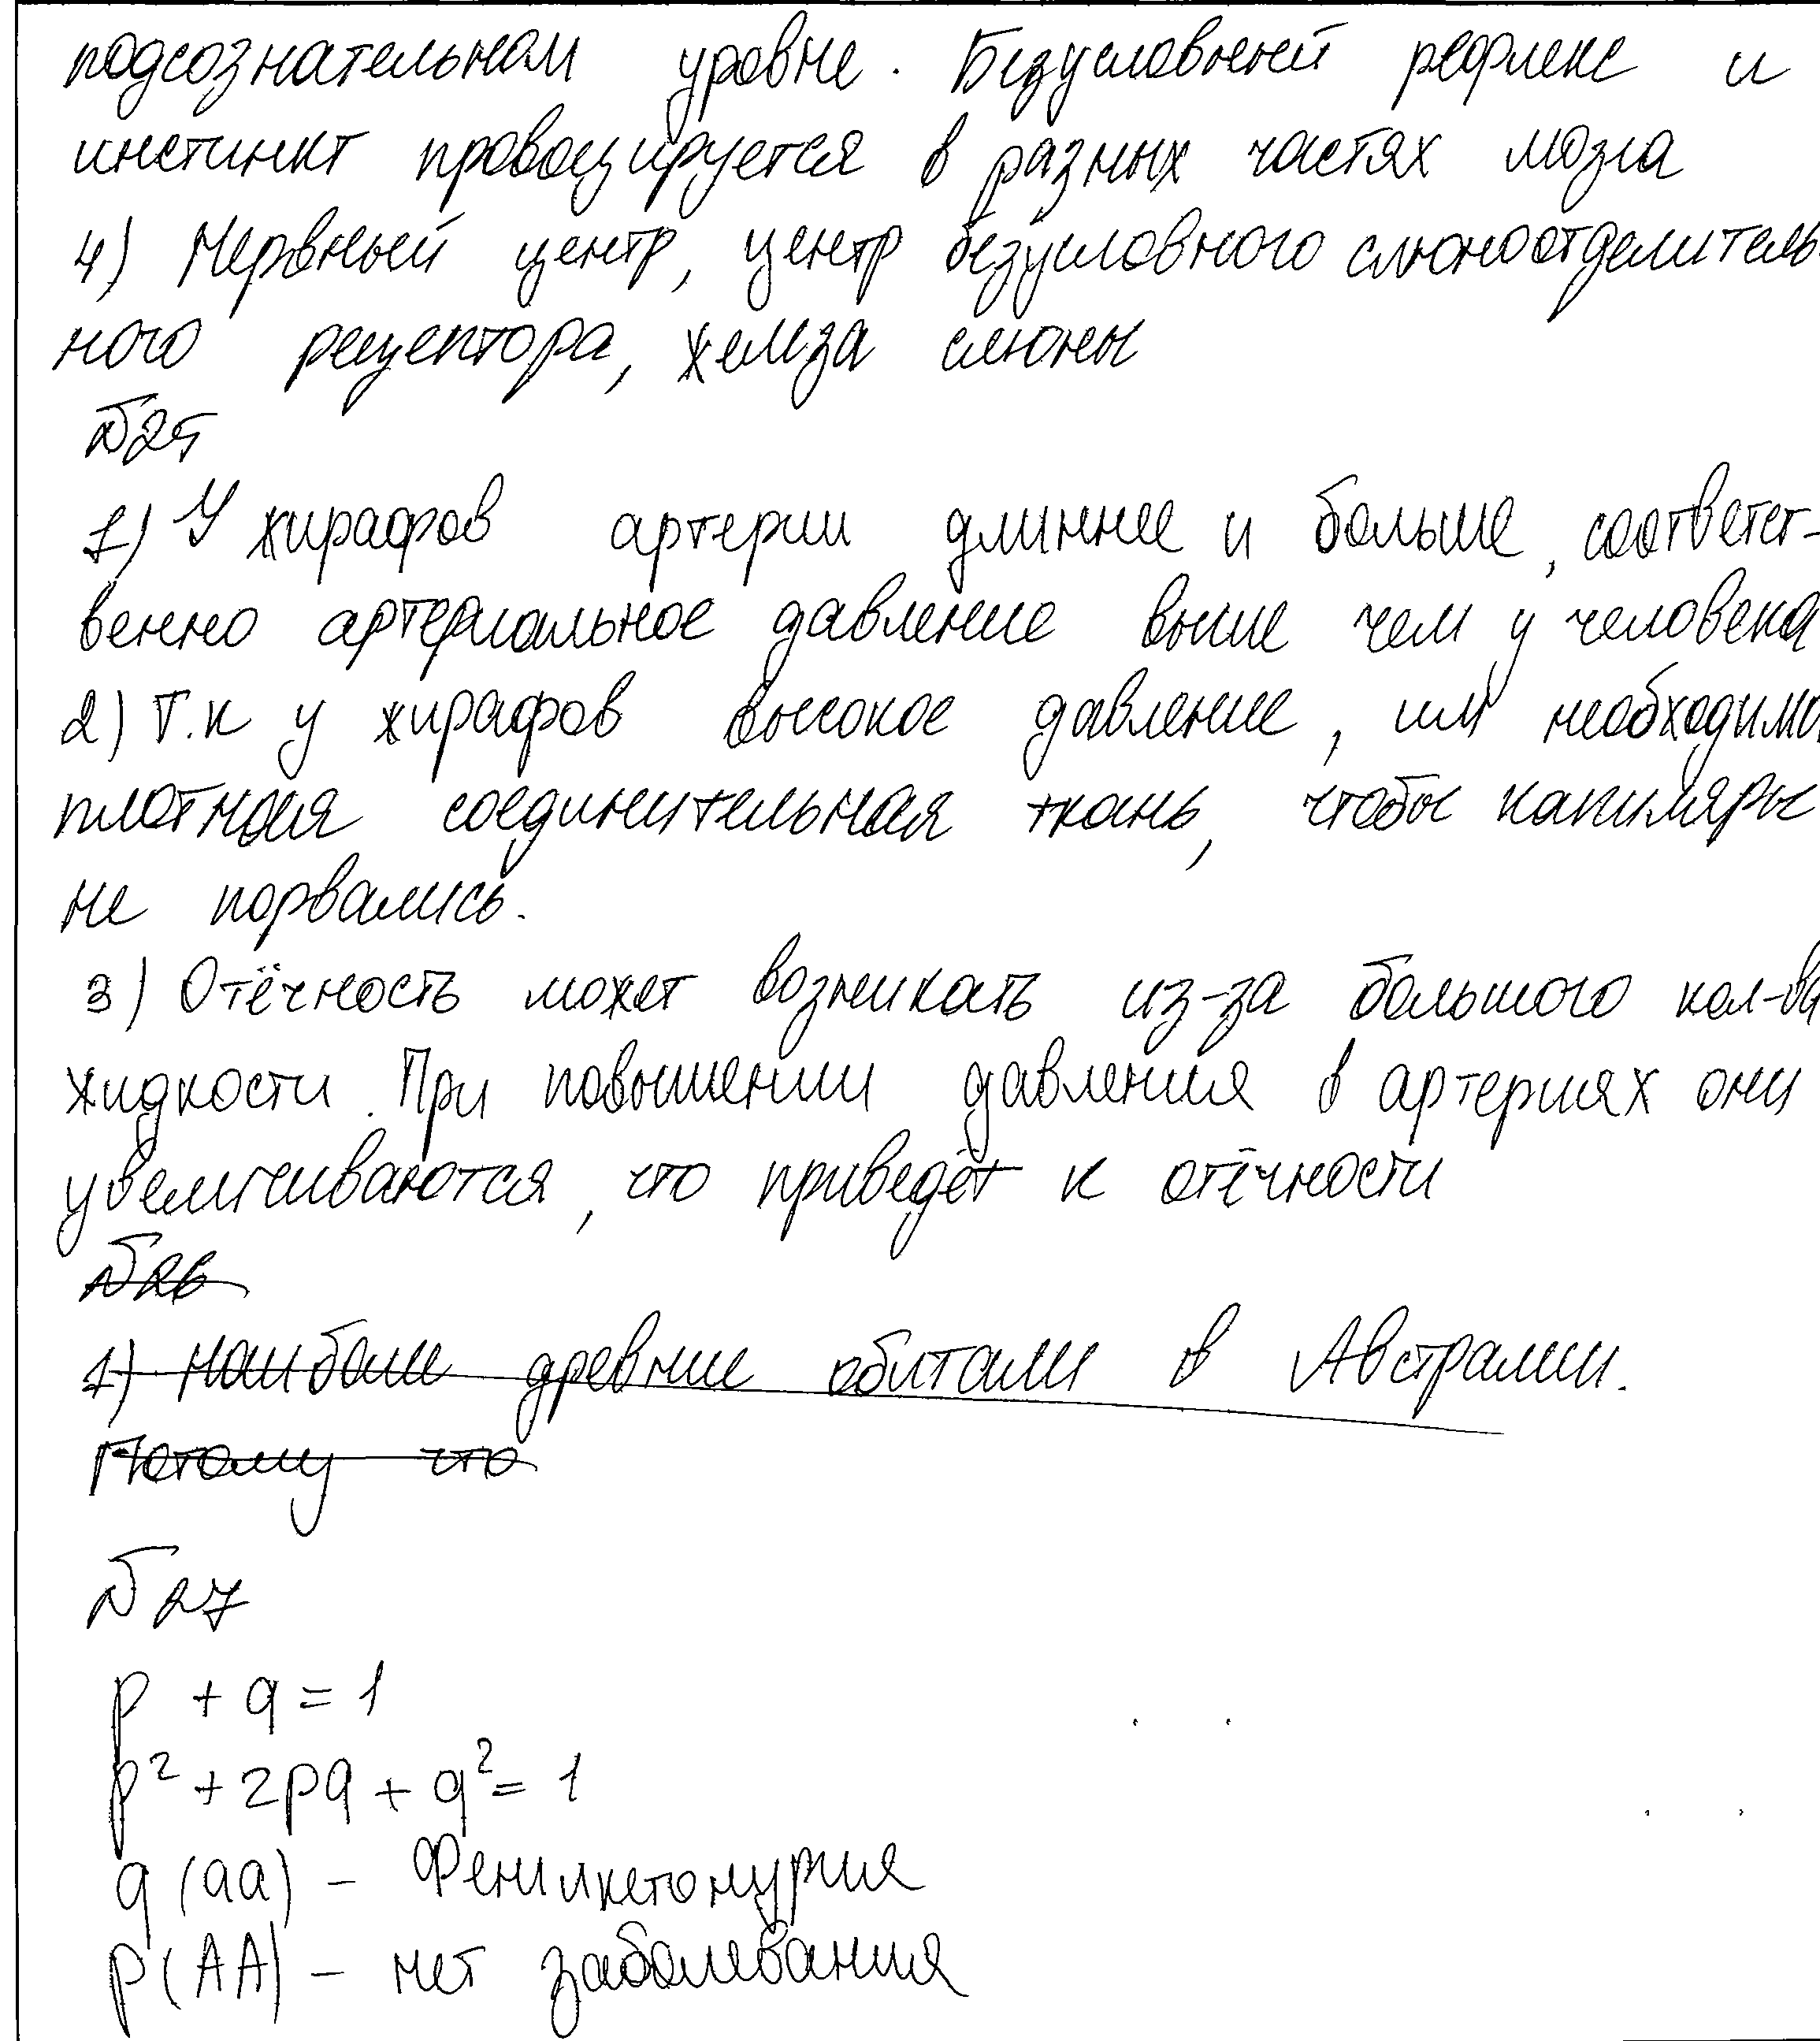 подсознательном уровне. Безусловный рефлекс и
инстинкт провоцируется в разных частях мозга
4) Нервный центр, центр безусловного слюноотделитель-
ного рецептора, железа слюны
№25
1) У жирафов артерии длиннее и больше, соответст-
венно артериальное давление выше чем у человека
2) Т.к у жирафов высокое давление, им необходима
плотная соединительная ткань, чтобы капиляры
не порвались.
3) Отёчность может возникать из-за большого кол-ва
жидкости. При повышении давления в артериях они
увеличиваются, что приведёт к отёчности
№26
1) Наиболее древние обитали в Австралии.
Потому что
№27
p + q = 1
p² + 2pq + q² = 1
q (aa) - Фенилкетонурия
p (AA) - нет заболевания